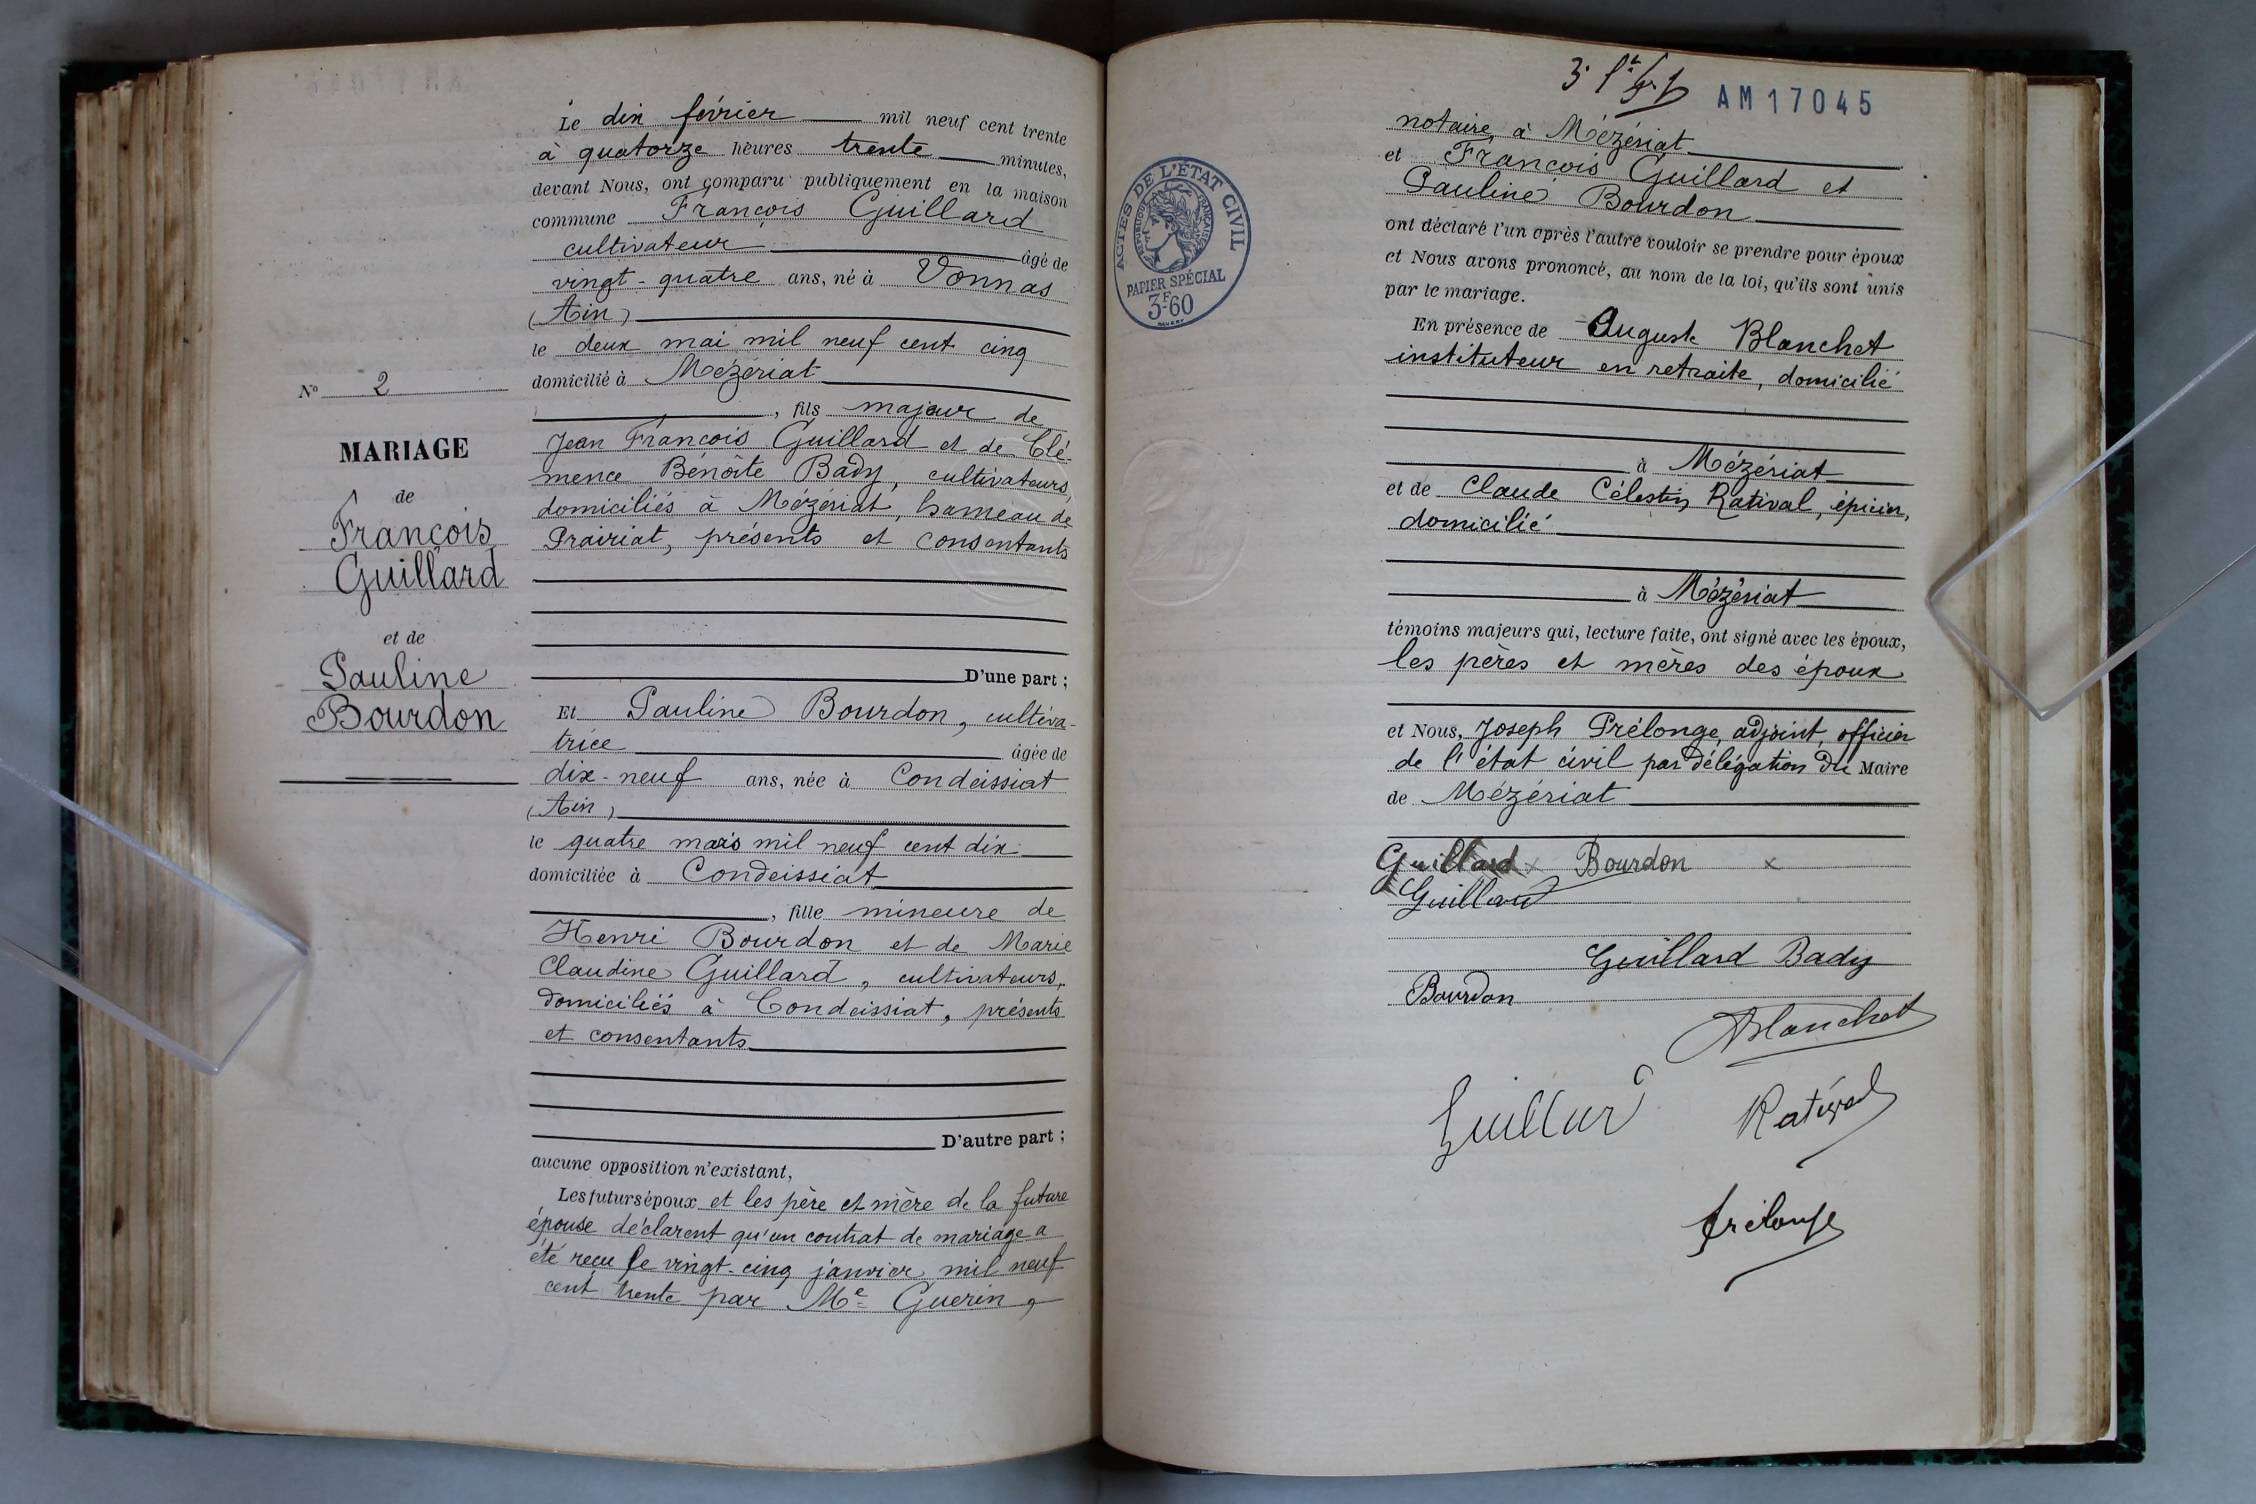 Le dix février mil neuf cent trente
à quatorze heures trente minutes,
devant Nous, ont comparu publiquement en la maison
commune François Guillard
cultivateur âgé de
vingt-quatre ans, né à Vonnas
(Ain)
le deux mai mil neuf cent cinq
domicilié à Mézériat
, fils majeur de
Jean François Guillard et de Clé-
mence Bénoîte Bady, cultivateurs,
domiciliés à Mézériat, hameau de
Prairiat, présents et consentants
D'une part ;
Et Pauline Bourdon, cultiva-
trice âgée de
dix-neuf ans, née à Condeissiat
(Ain)
le quatre mars mil neuf cent dix
domiciliée à Condeissiat
, fille mineure de
Henri Bourdon et de Marie
Claudine Guillard, cultivateurs,
domiciliés à Condeissiat, présents
et consentants
D'autre part ;
aucune opposition n'existant,
Les futurs époux et les père et mère de la future
épouse déclarent qu'un contrat de mariage a
été reçu le vingt-cinq janvier mil neuf
cent trente par Me Guerin,
No 2
MARIAGE
de
François
Guillard
et de
Pauline
Bourdon
AM17045
ACTES DE L'ÉTAT CIVIL
RÉPUBLIQUE FRANÇAISE
PAPIER SPÉCIAL
3F60
notaire à Mézériat
et François Guillard et
Pauline Bourdon
ont déclaré l'un après l'autre vouloir se prendre pour époux
et Nous avons prononcé, au nom de la loi, qu'ils sont unis
par le mariage.
En présence de Auguste Blanchet
instituteur en retraite, domicilié
à Mézériat
et de Claude Célestin Ratival, épicier,
domicilié
à Mézériat
témoins majeurs qui, lecture faite, ont signé avec les époux,
les pères et mères des époux
et Nous, Joseph Prélonge, adjoint, officier
de l'état civil par délégation du Maire
de Mézériat
Guillard x Bourdon x
Guillard
Guillard Bady
Bourdon
Blanchet
Guillard
Ratival
Prélonge